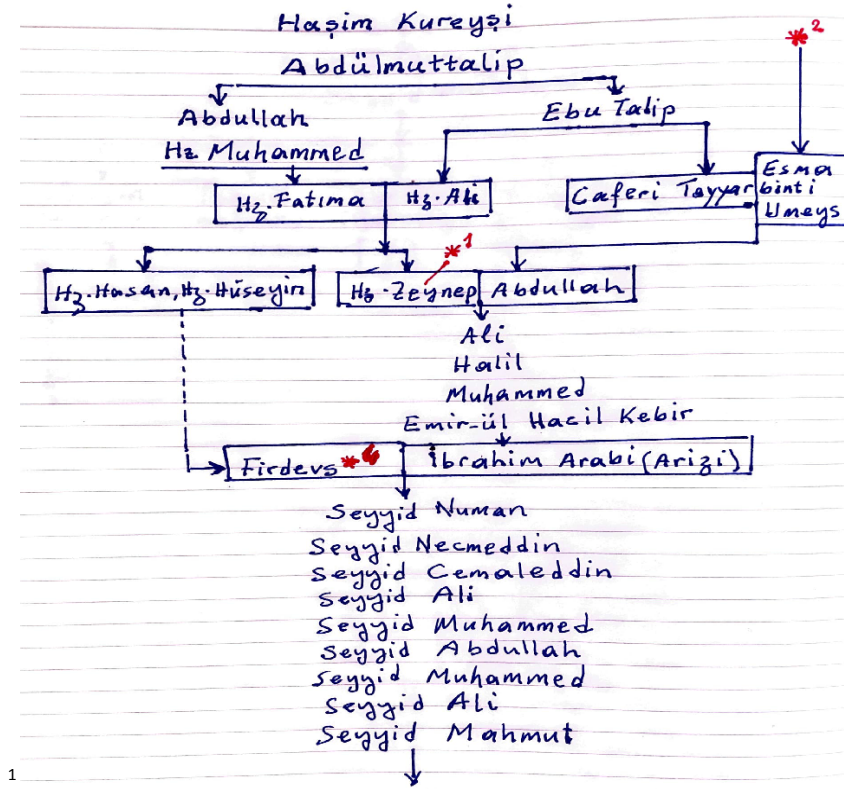 Haşim Kureyşi
*2
Abdülmuttalip
Abdullah
Ebu Talip
Hz Muhammed
Hz. Fatıma Hz. Ali
Caferi Tayyar
Esma
binti
Umeys
*1
Hz. Hasan, Hz. Hüseyin
Hz. Zeynep Abdullah
Ali
Halil
Muhammed
Emir-ül Hacil Kebir
Firdevs * İbrahim Arabi (Arizi)
Seyyid Numan
Seyyid Necmeddin
Seyyid Cemaleddin
Seyyid Ali
Seyyid Muhammed
Seyyid Abdullah
Seyyid Muhammed
Seyyid Ali
Seyyid Mahmut
1